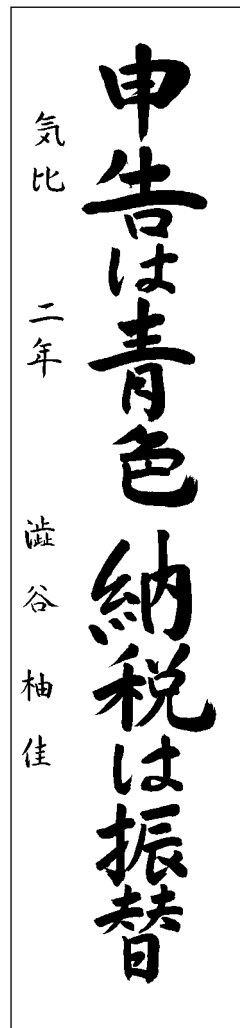 申告は青色 納税は振替
気比 二年 澁谷 柚佳